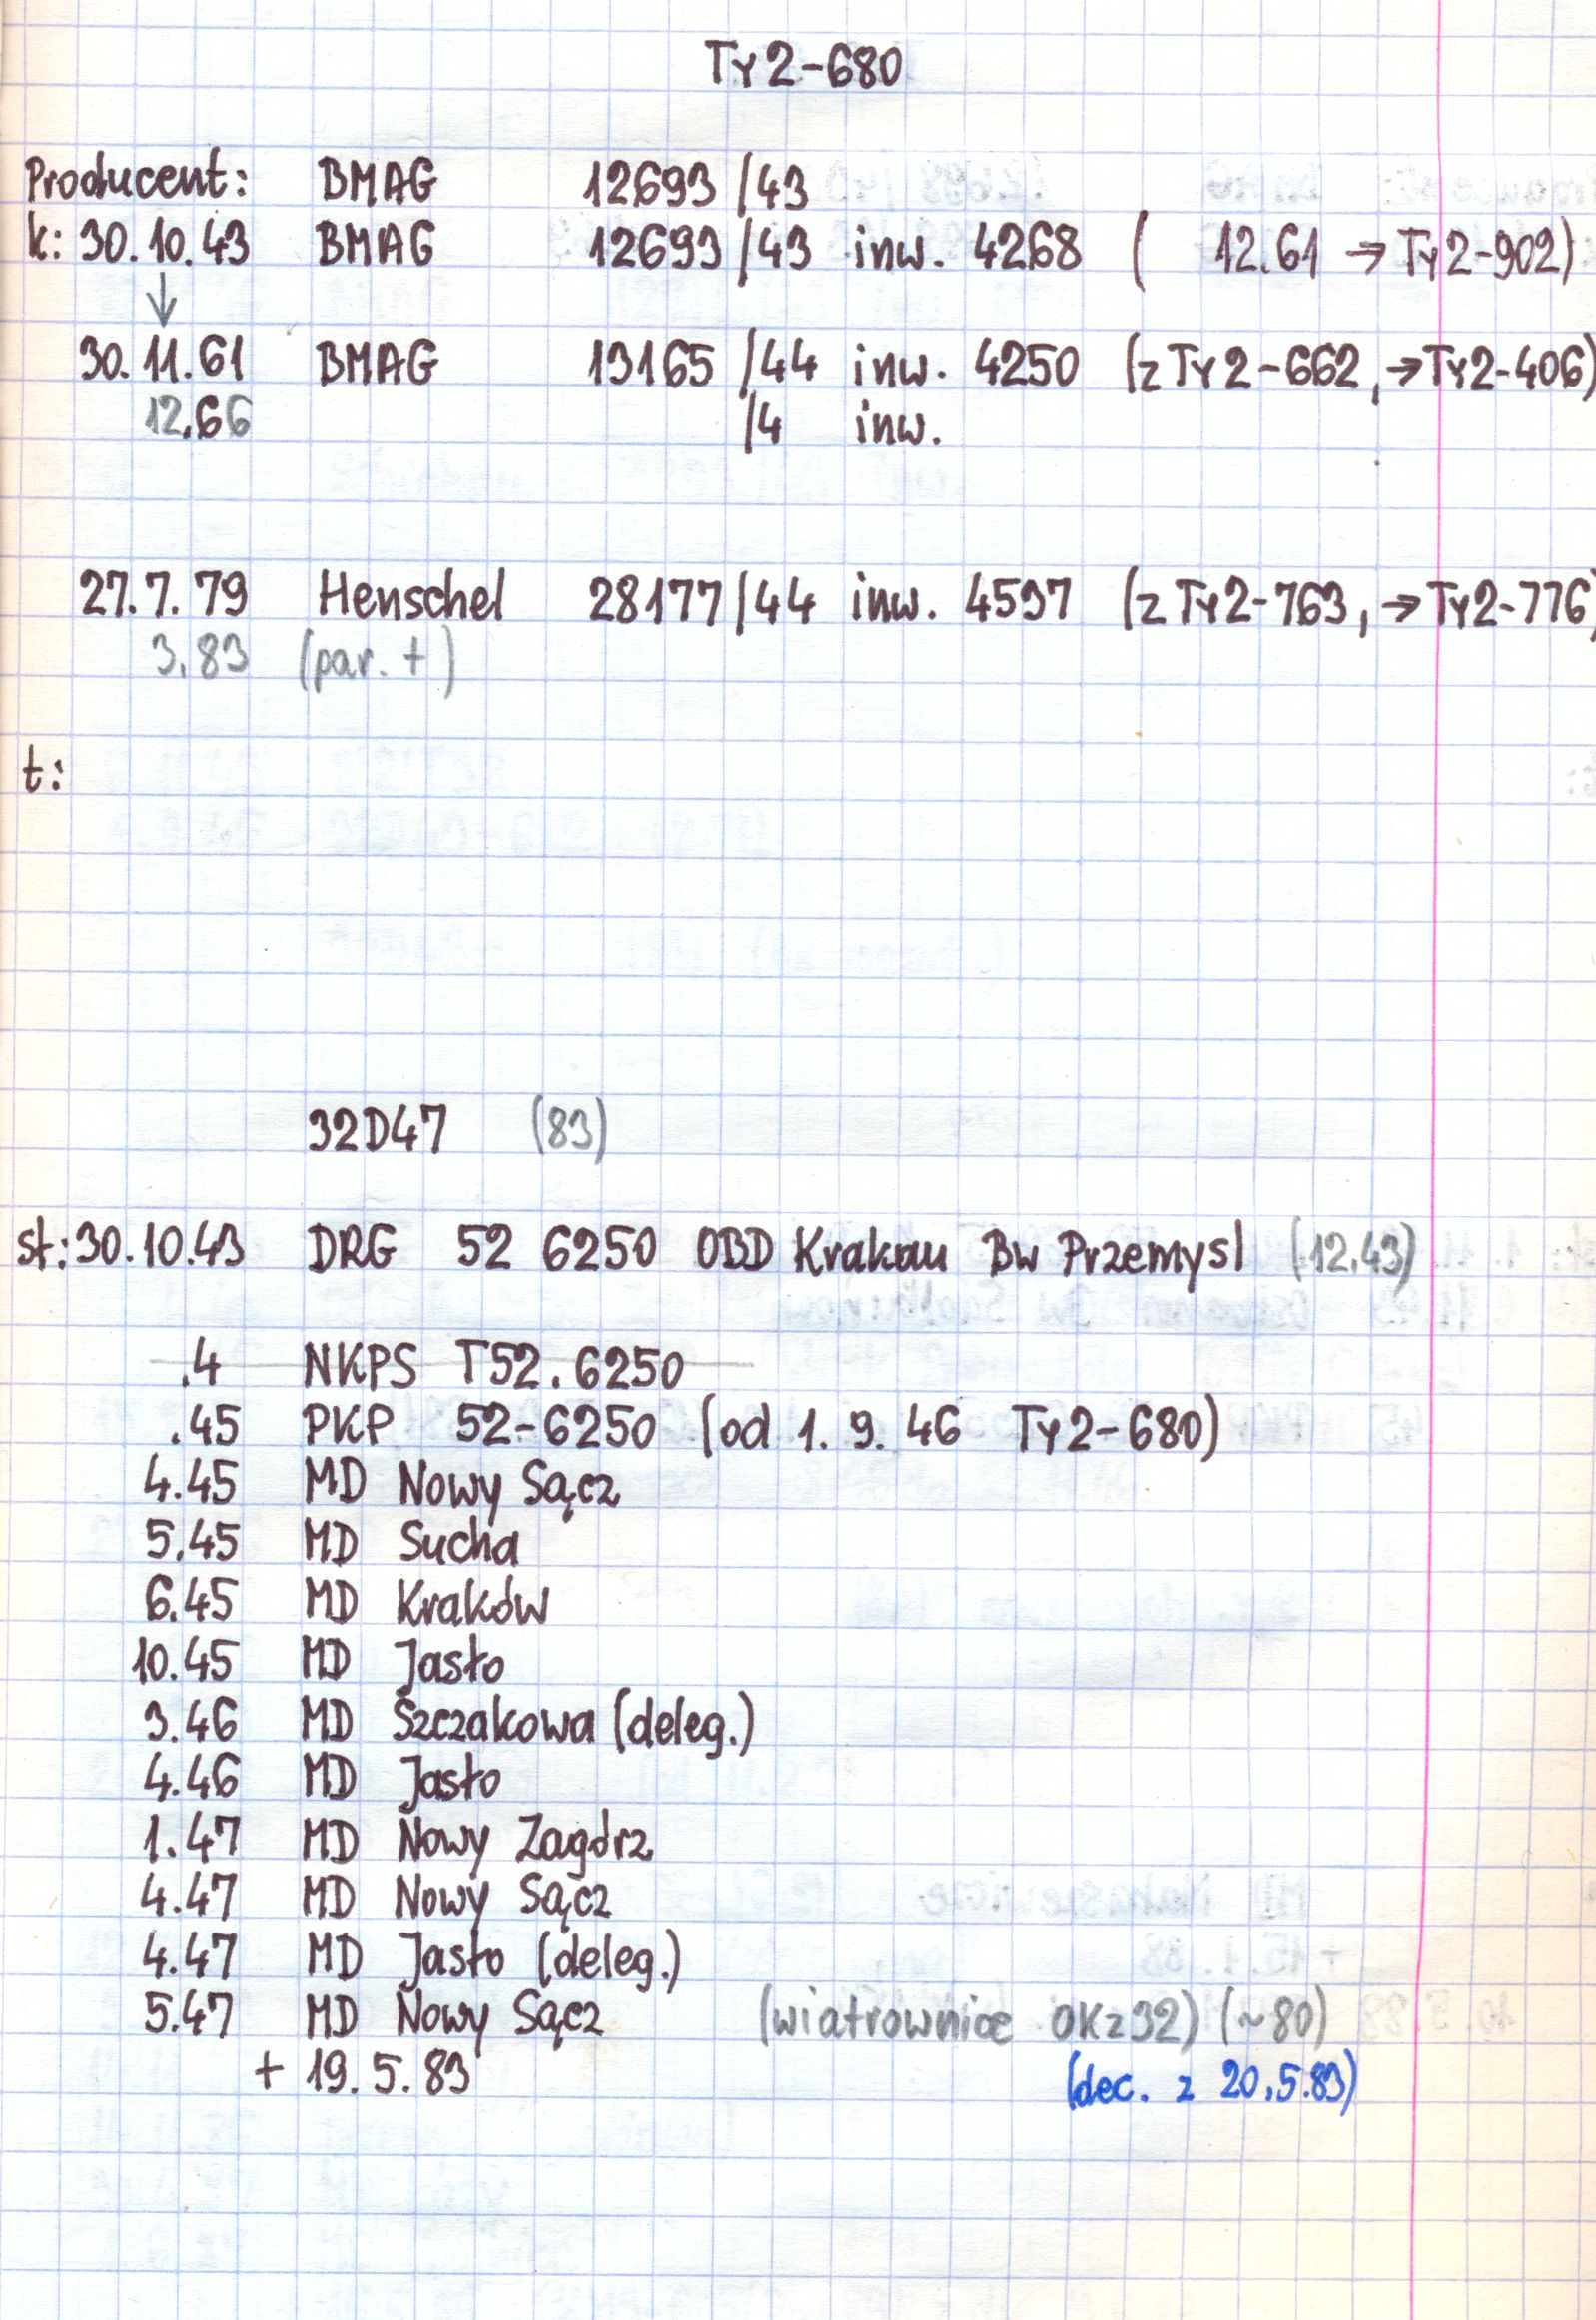 Ty2-680
Producent: BMAG 12693/43
k: 30.10.43 BMAG 12693/43 inw. 4268 ( 12.61 → Ty2-902)
↓
30.11.61 BMAG 13165/44 inw. 4250 (z Ty2-662, → Ty2-406)
12.66 /4 inw.
27.7.79 Henschel 28177/44 inw. 4597 (z Ty2-763, → Ty2-776)
3.83 (par. +)
t:
32D47 (83)
st: 30.10.43 DRG 52 6250 OBD Krakau Bw Przemysl (12.43)
.4 NKPS T52.6250
.45 PKP 52-6250 (od 1. 9. 46 Ty2-680)
4.45 MD Nowy Sącz
5.45 MD Sucha
6.45 MD Kraków
10.45 MD Jasło
3.46 MD Szczakowa (deleg.)
4.46 MD Jasło
1.47 MD Nowy Zagórz
4.47 MD Nowy Sącz
4.47 MD Jasło (deleg.)
5.47 MD Nowy Sącz (wiatrownice OKz32) (~80)
+ 19.5.83 (dec. z 20.5.83)